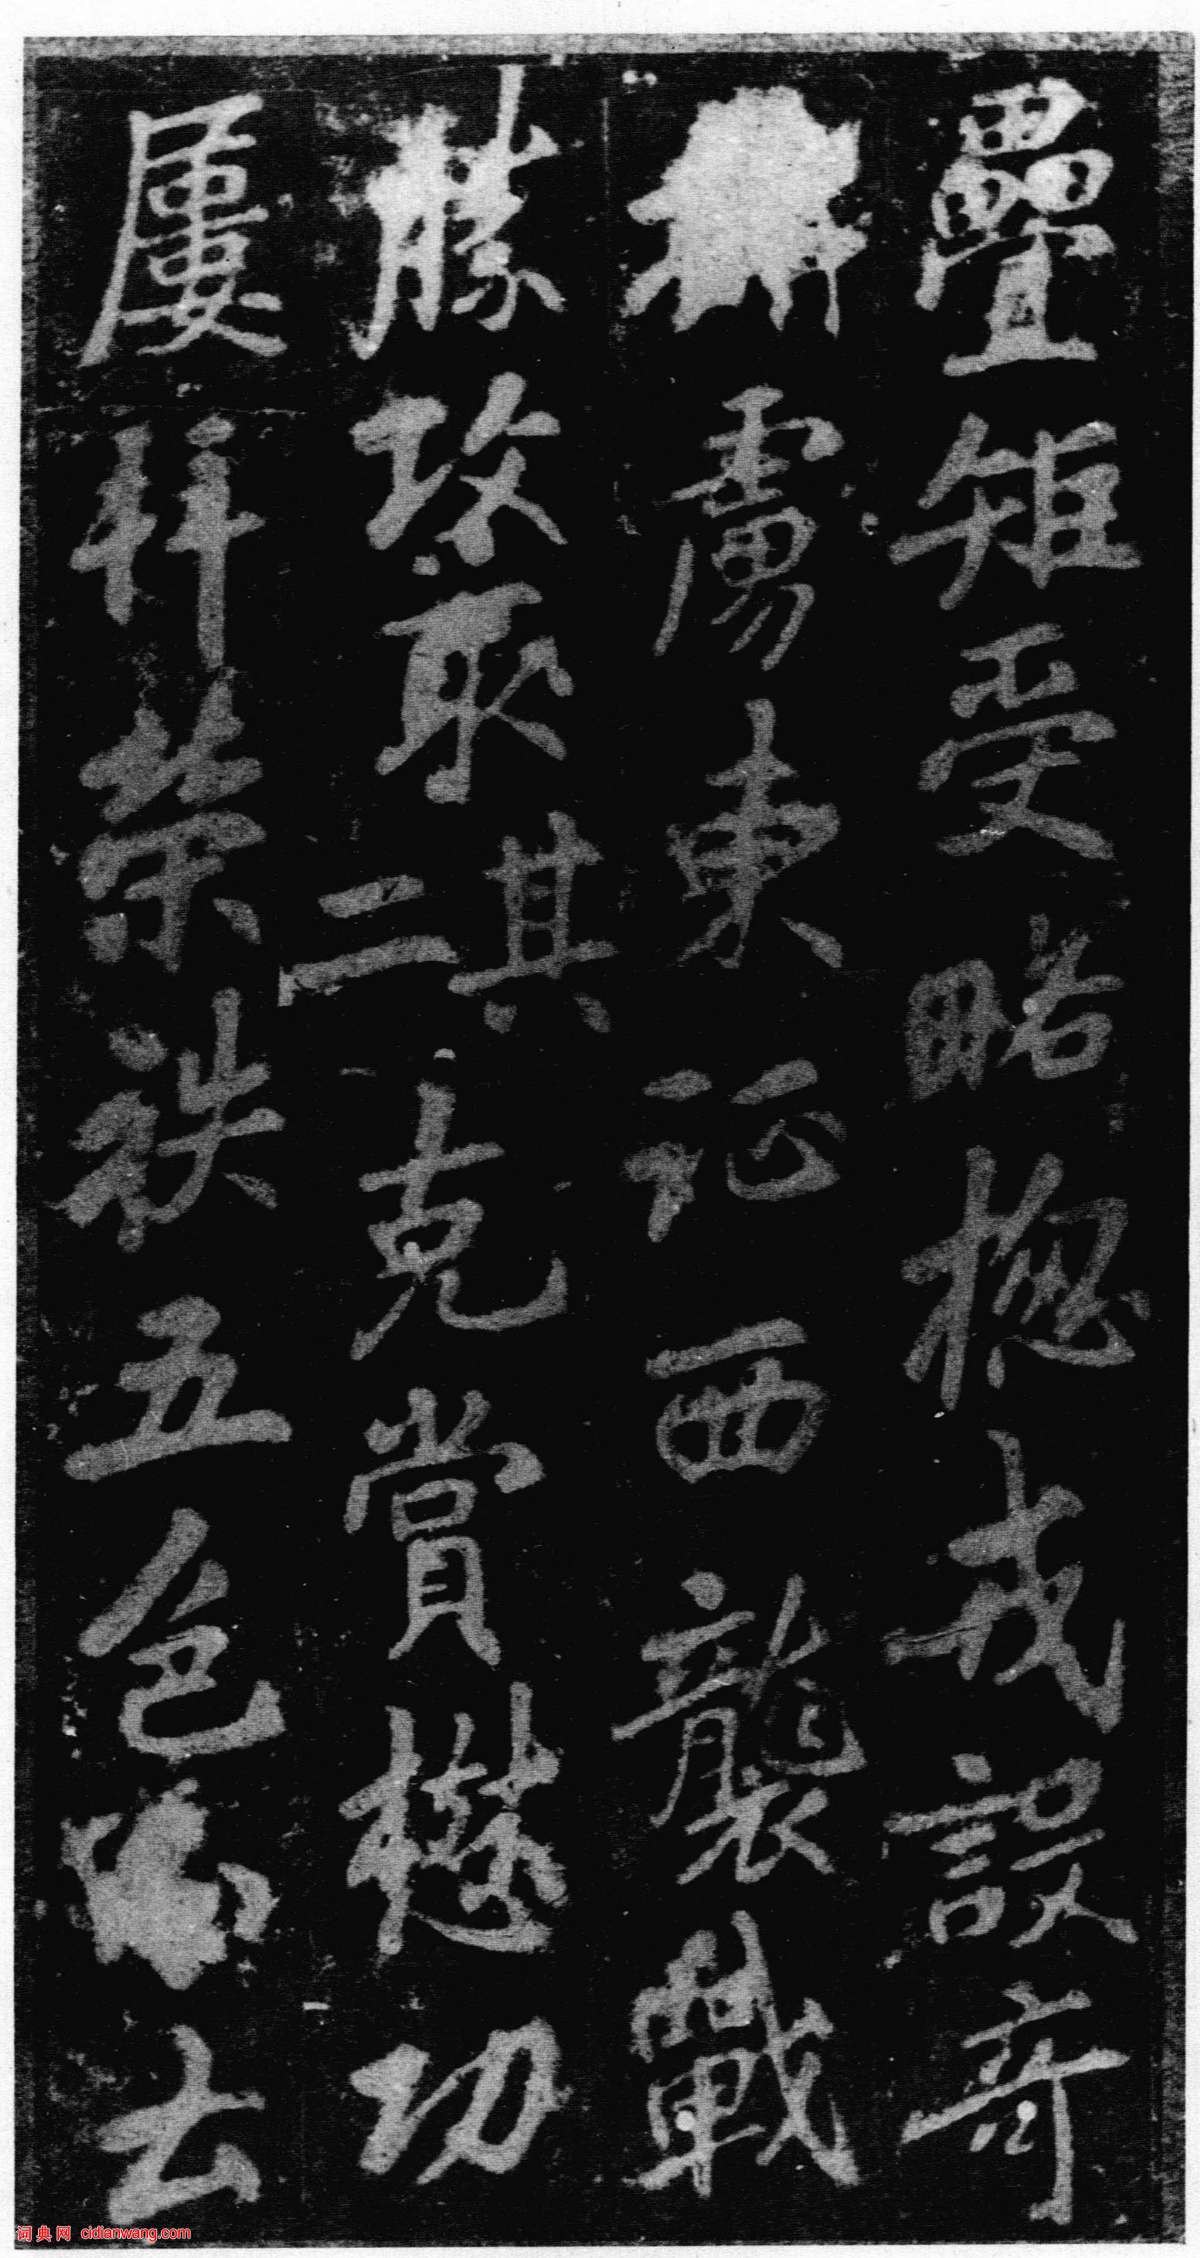 疊矩受略撫戎設奇
虜東征西襲戰
勝攻取其二克賞懋功
屢拜榮袟五色去
词典网 cidianwang.com